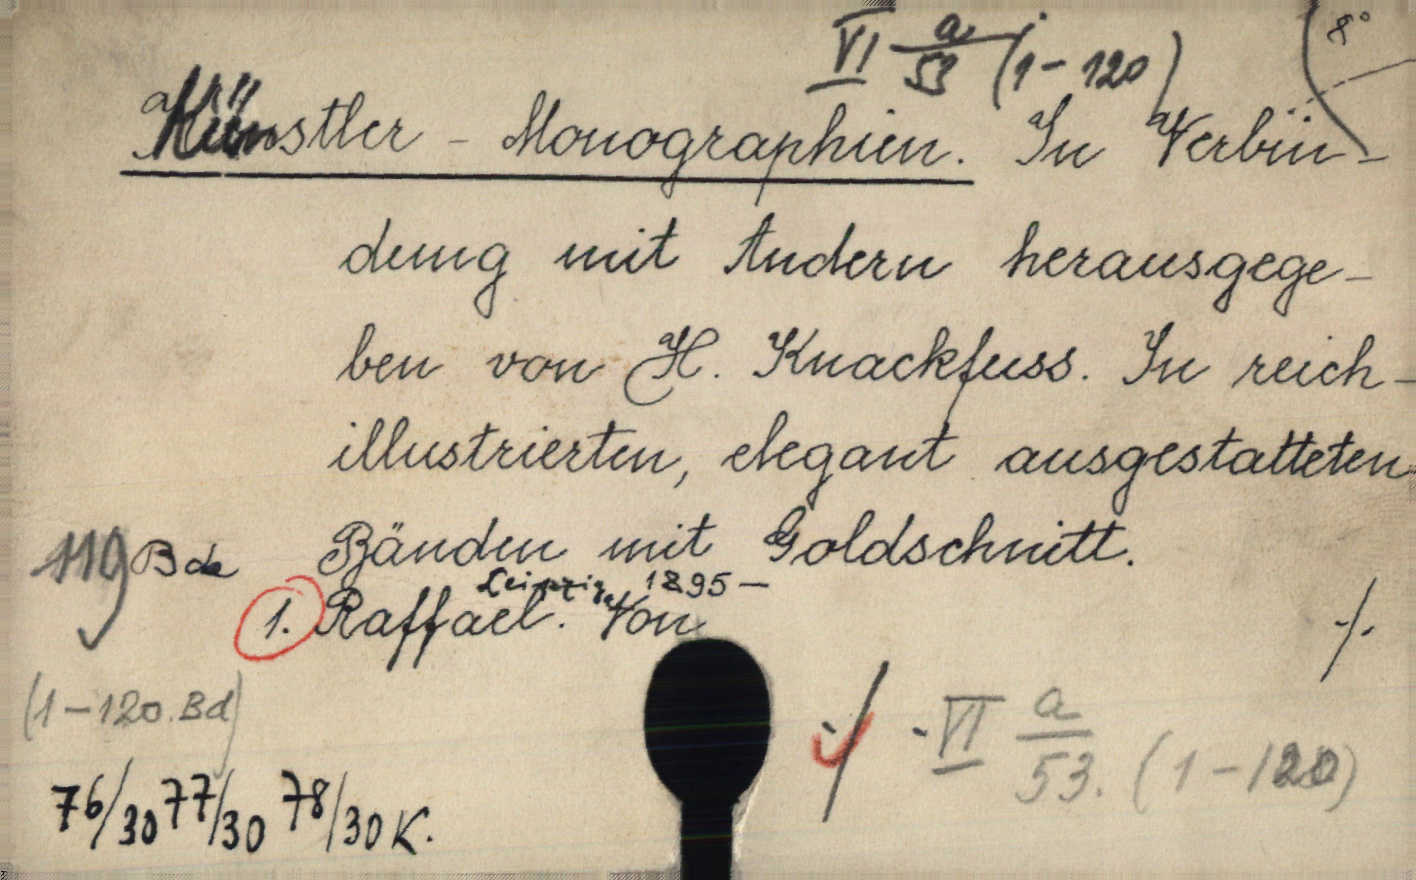 VI a/53 (1-120)
8°
Künstler - Monographien. In Verbin-
dung mit Andern herausgege-
ben von H. Knackfuss. In reich-
illustrierten, elegant ausgestatteten
119 Bde Bänden mit Goldschnitt.
Leipzig, 1895-
1. Raffael. Von
./.
(1-120.Bd)
./. VI a/53. (1-120)
76/30 77/30 78/30 K.